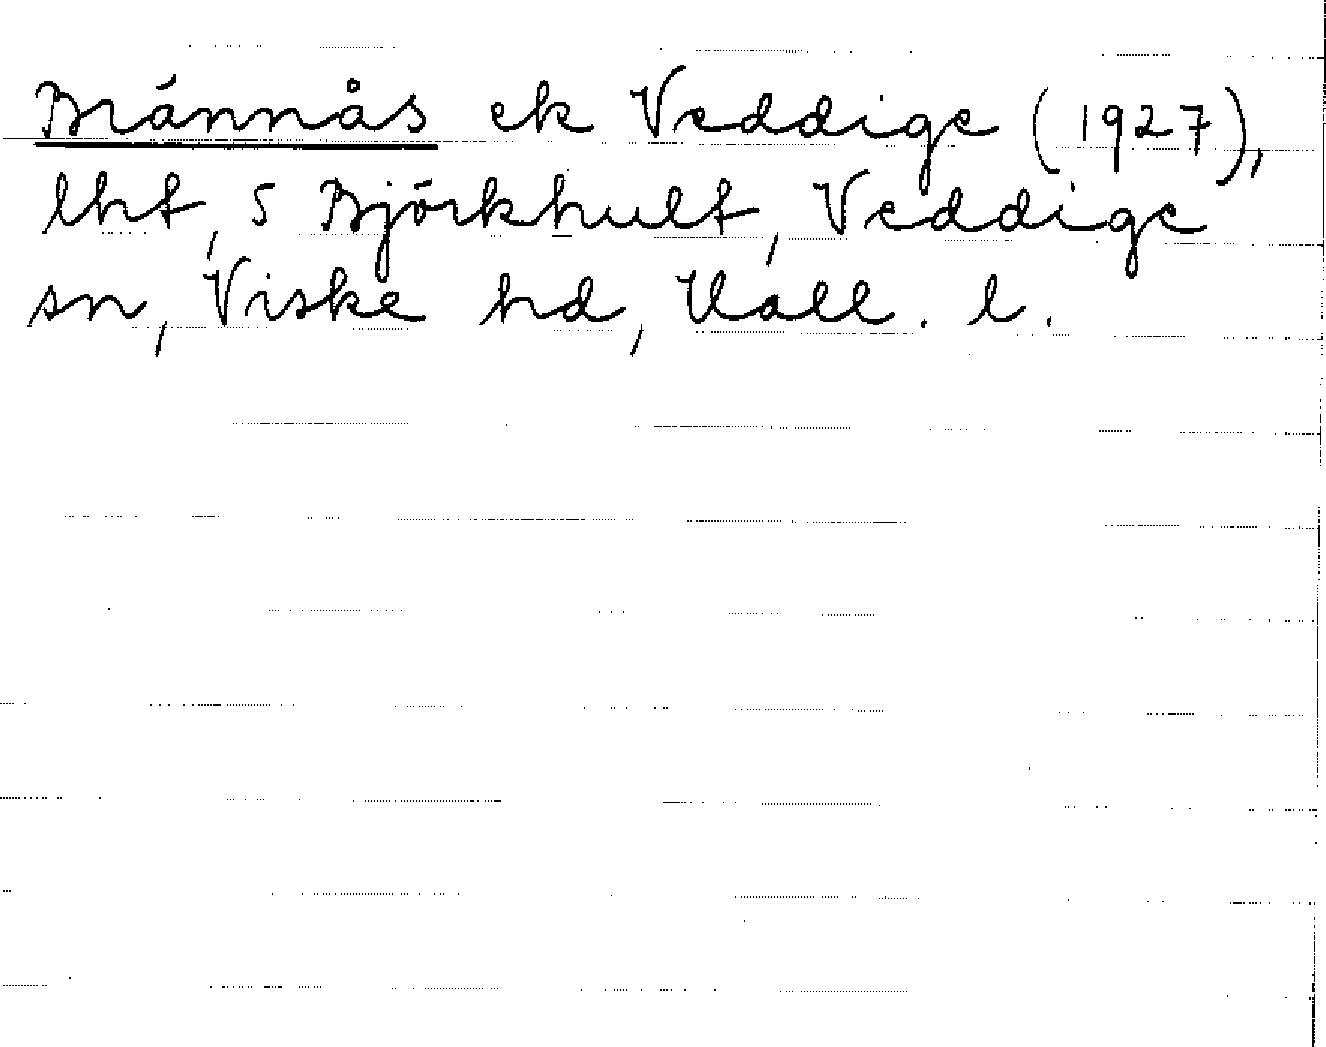 Brännås ek Veddige (1927),
lht, S Björkhult, Veddige
sn, Viske hd, Hall. l.